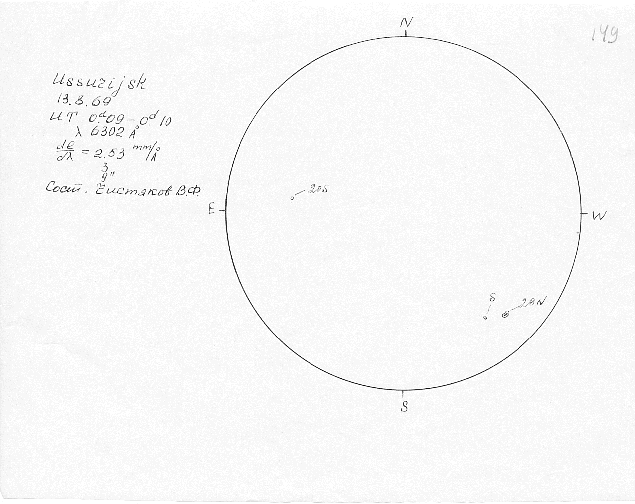 N
149
Ussurijsk
13.8.69
UT 0ᵈ09 - 0ᵈ10
λ 6302 Å
= 2.53 mm/Å
Сост. Чистяков В.Ф.
E
W
S